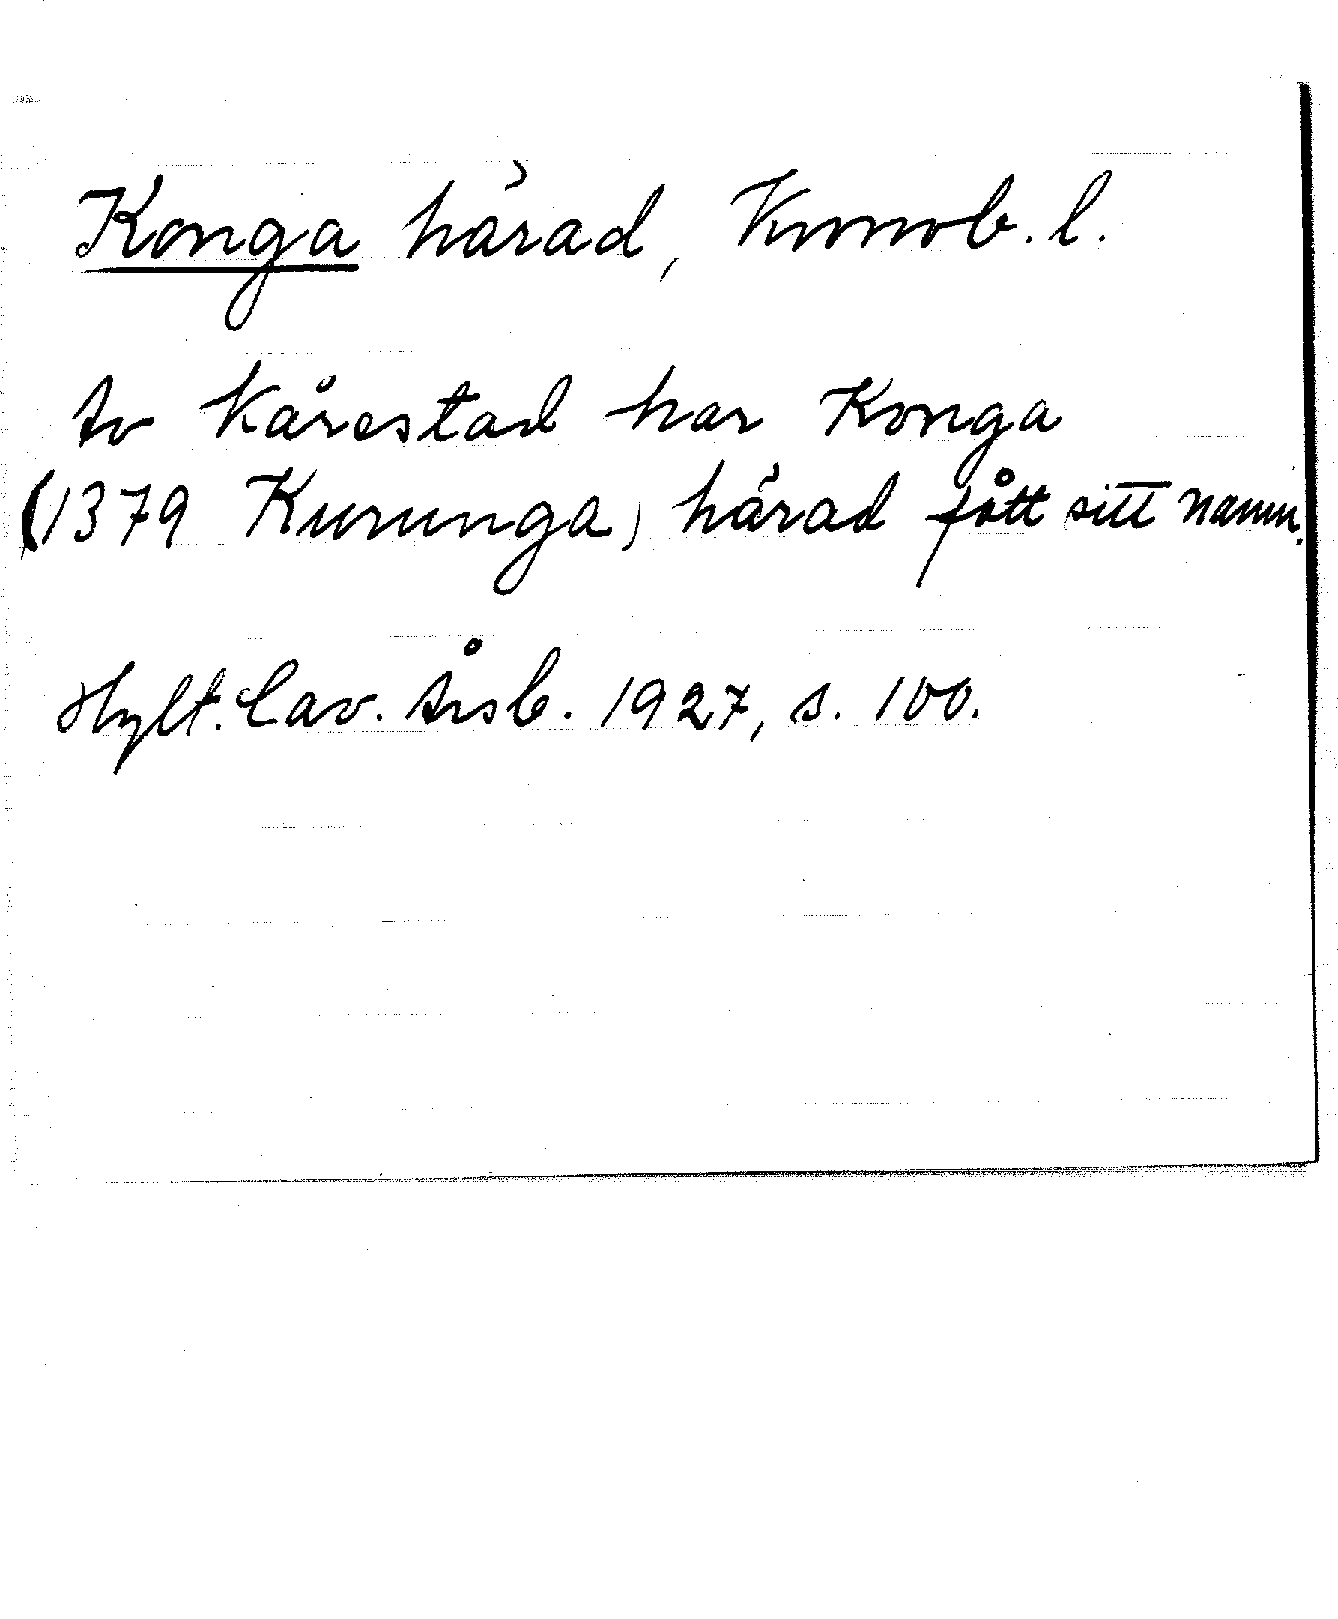 Konga härad, Kronob. l.
Av Kårestad har Konga
(1379 Kurunga) härad fått sitt namn.
Hylt. Cav. Årsb. 1927, s. 100.